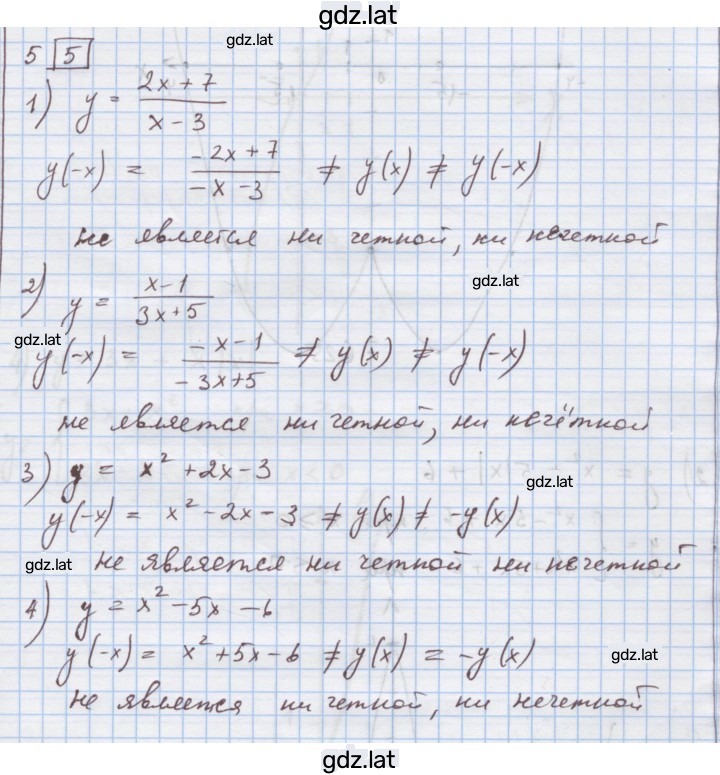 gdz.lat
gdz.lat
5 5
1) y = (2x + 7)/(x - 3)
y(-x) = (-2x + 7)/(-x - 3) ≠ y(x) ≠ y(-x)
не является ни четной, ни нечетной
gdz.lat
2) y = (x - 1)/(3x + 5)
gdz.lat
y(-x) = (-x - 1)/(-3x + 5) ≠ y(x) ≠ y(-x)
не является ни четной, ни нечётной
3) y = x² + 2x - 3
gdz.lat
y(-x) = x² - 2x - 3 ≠ y(x) ≠ -y(x)
gdz.lat не является ни четной ни нечетной
4) y = x² - 5x - 6
y(-x) = x² + 5x - 6 ≠ y(x) = -y(x)
gdz.lat
не является ни четной, ни нечетной
gdz.lat